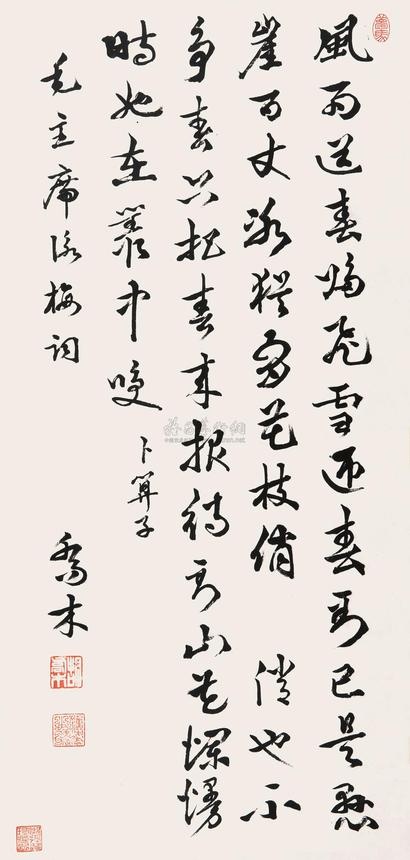 風雨送春歸飛雪迎春到已是懸
崖百丈冰猶有花枝俏 俏也不
爭春只把春來報待到山花爛熳
時她在叢中咲 卜算子
毛主席詠梅詞
喬木